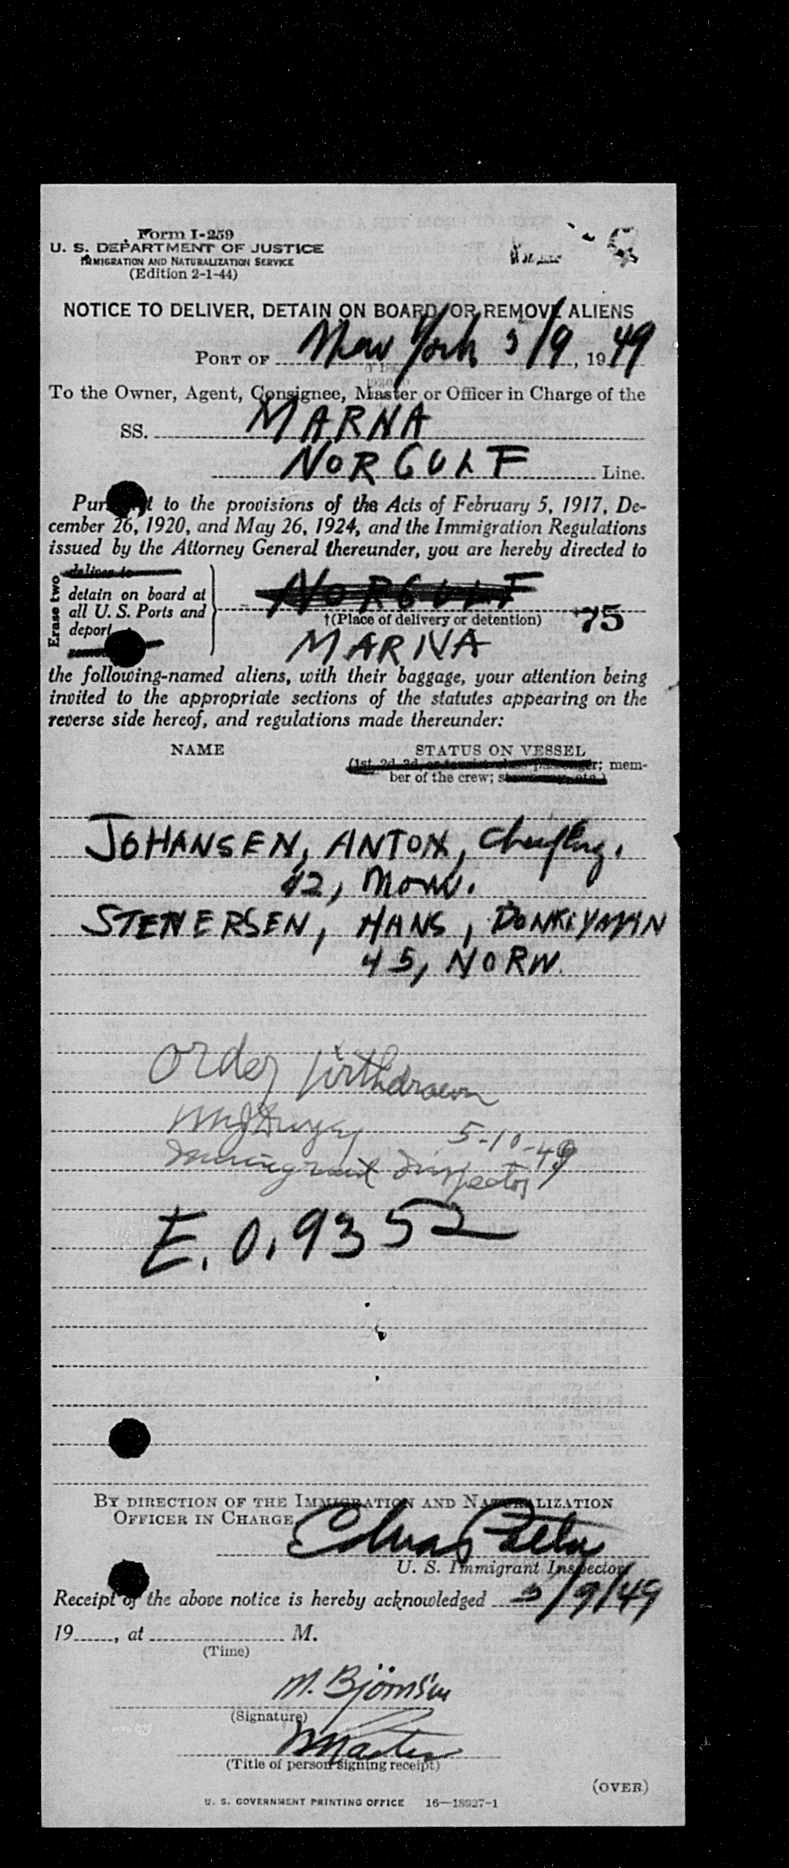 Form I-259
U. S. DEPARTMENT OF JUSTICE
IMMIGRATION AND NATURALIZATION SERVICE
(Edition 2-1-44)
NOTICE TO DELIVER, DETAIN ON BOARD, OR REMOVE ALIENS
PORT OF New York 5/9, 1949
To the Owner, Agent, Consignee, Master or Officer in Charge of the
SS. MARNA
NORGULF Line.
Pursuant to the provisions of the Acts of February 5, 1917, De-
cember 26, 1920, and May 26, 1924, and the Immigration Regulations
issued by the Attorney General thereunder, you are hereby directed to
Erase two
deliver to
detain on board at
all U. S. Ports and
deport
NORGULF
†(Place of delivery or detention)
75
MARNA
the following-named aliens, with their baggage, your attention being
invited to the appropriate sections of the statutes appearing on the
reverse side hereof, and regulations made thereunder:
NAME STATUS ON VESSEL
(1st, 2d, 3d, or tourist class passenger; mem-
ber of the crew; stowaway, etc.)
JOHANSEN, ANTON, Chief Eng.
42, Norw.
STENERSEN, HANS, DONKEYMAN
45, NORW.
Order Withdrawn
5-10-49
Immigrant Inspector
E.O. 9352
BY DIRECTION OF THE IMMIGRATION AND NATURALIZATION
OFFICER IN CHARGE
U. S. Immigrant Inspector
Receipt of the above notice is hereby acknowledged 5/9/49
19, at M.
(Time)
M. Björnsen
(Signature)
Master
(Title of person signing receipt)
(OVER)
U. S. GOVERNMENT PRINTING OFFICE 16—18927-1